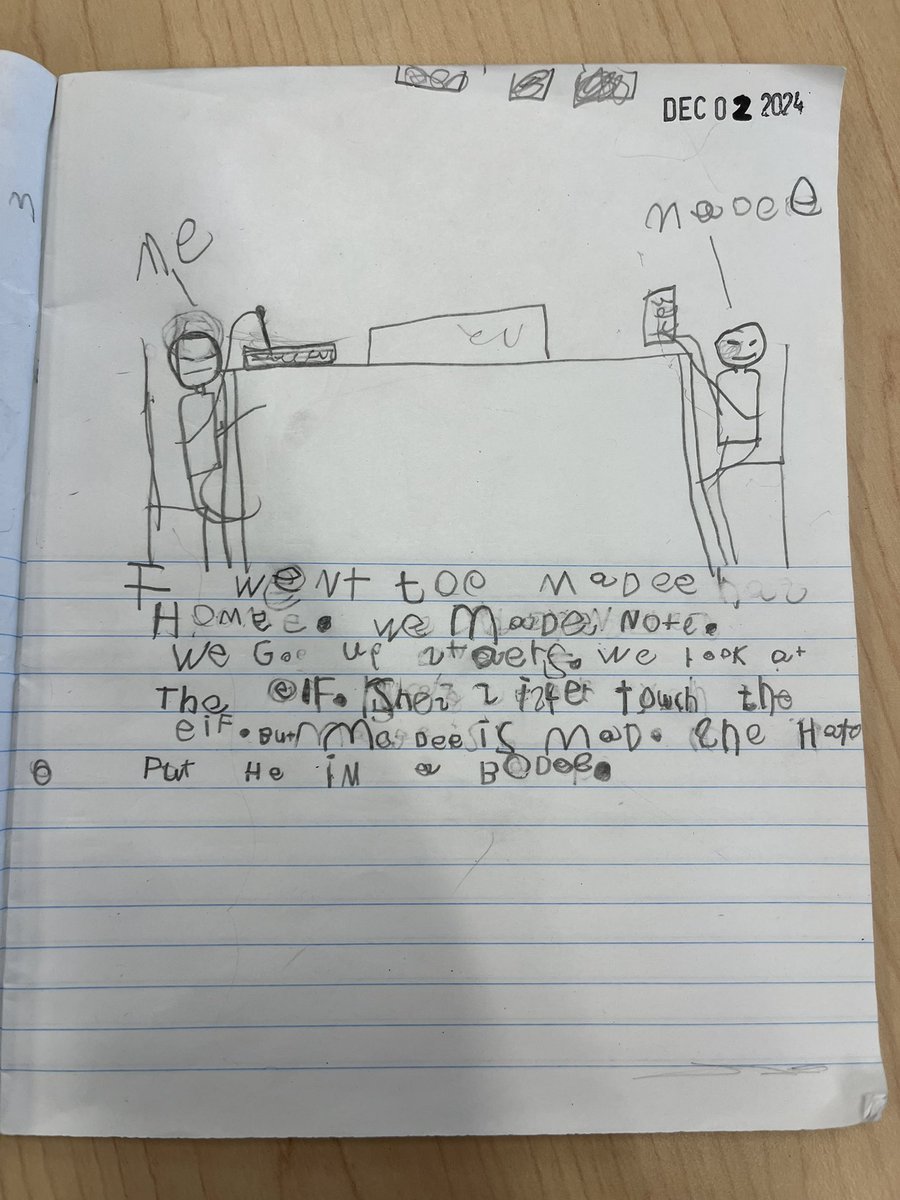 DEC 02 2024
me
madee
I went toe madee
Home. we made Note.
we Goe up staers. we look at
The elf. Shez sister touch the
elf. But Madee is mad. she Hafto
Put He in a BODOB.